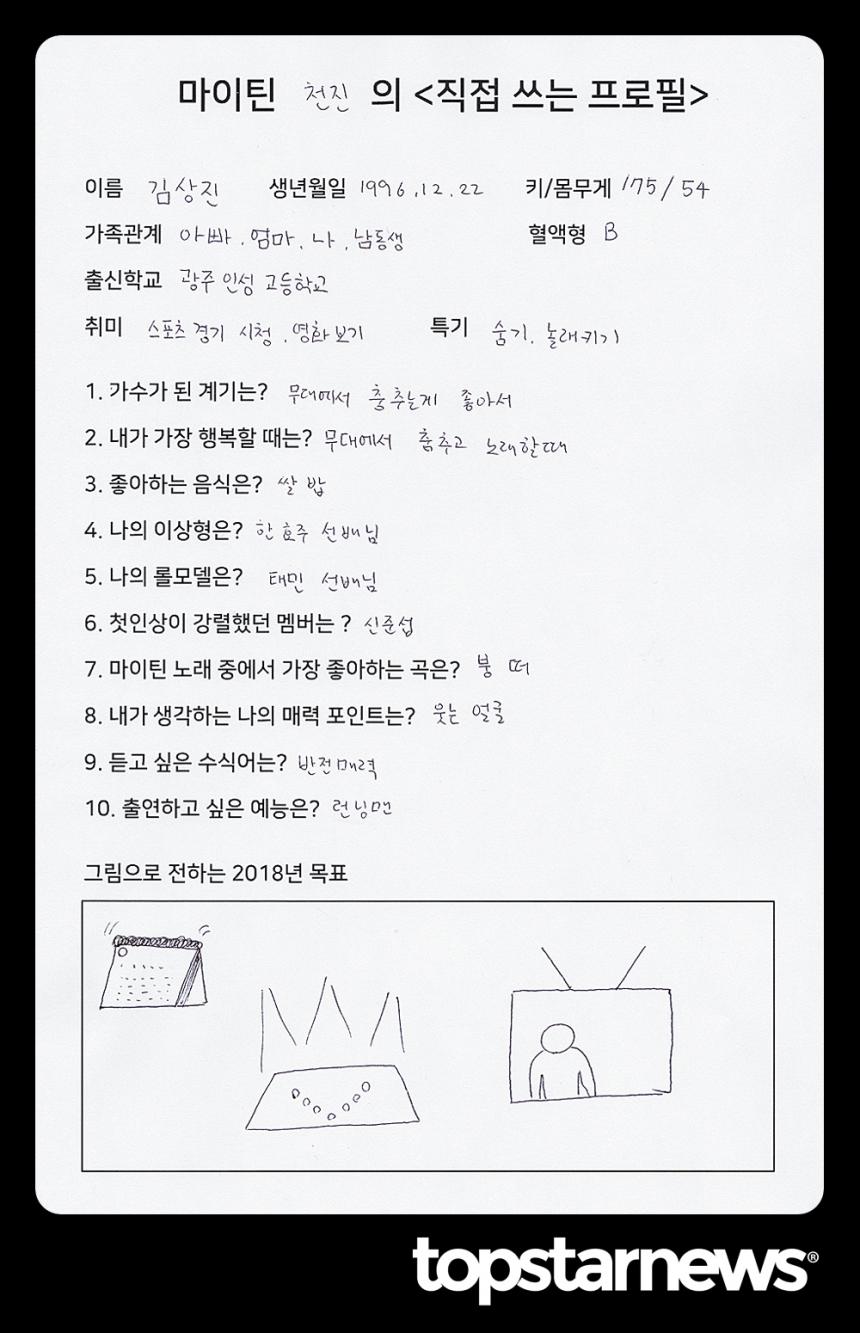 마이틴 천진 의 <직접 쓰는 프로필>
이름 김상진 생년월일 1996.12.22 키/몸무게 175/54
가족관계 아빠, 엄마, 나, 남동생 혈액형 B
출신학교 광주 인성 고등학교
취미 스포츠 경기 시청, 영화보기 특기 숨기, 놀래키기
1. 가수가 된 계기는? 무대에서 춤추는게 좋아서
2. 내가 가장 행복할 때는? 무대에서 춤추고 노래할때
3. 좋아하는 음식은? 쌀밥
4. 나의 이상형은? 한효주 선배님
5. 나의 롤모델은? 태민 선배님
6. 첫인상이 강렬했던 멤버는 ? 신준섭
7. 마이틴 노래 중에서 가장 좋아하는 곡은? 붕 떠
8. 내가 생각하는 나의 매력 포인트는? 웃는 얼굴
9. 듣고 싶은 수식어는? 반전매력
10. 출연하고 싶은 예능은? 런닝맨
그림으로 전하는 2018년 목표
topstarnews®